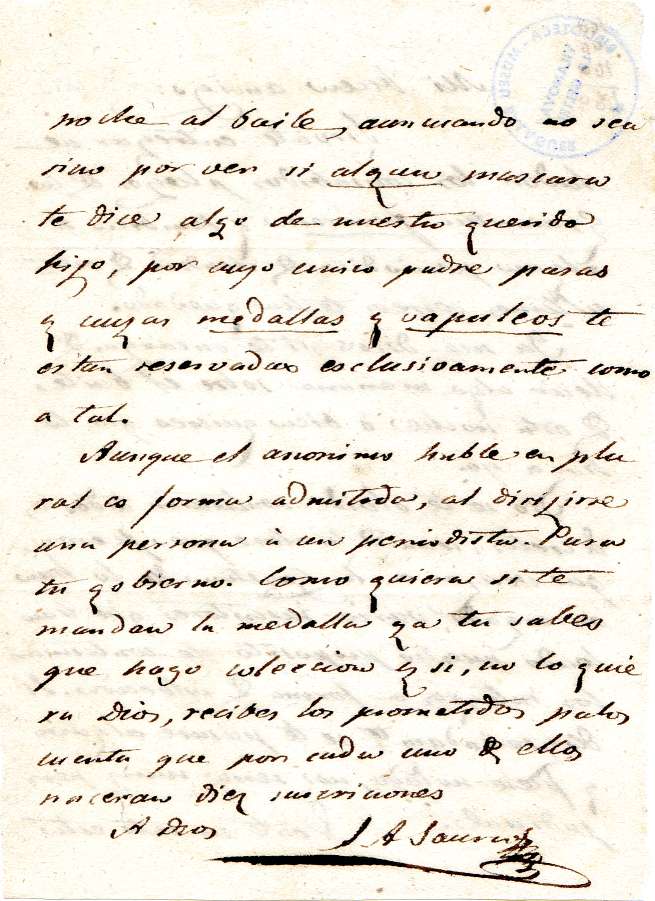 noche al baile, aun cuando no sea
sino por ver si alguna mascara
te dice algo de nuestro querido
hijo, por cuyo unico padre pasas
y cuyas medallas y vapuleos te
estan reservadas esclusivamente como
a tal.
Aunque el anonimo hable en plu
ral es forma admitida, al dirijirse
una persona à un periodista. Para
tu gobierno. Como quiera si te
mandan la medalla ya tu sabes
que hago coleccion y si, no lo quie
ra Dios, recibes los prometidos palos
cuenta que por cada uno de ellos
naceran diez suscriciones
A Dios
J A Saurí